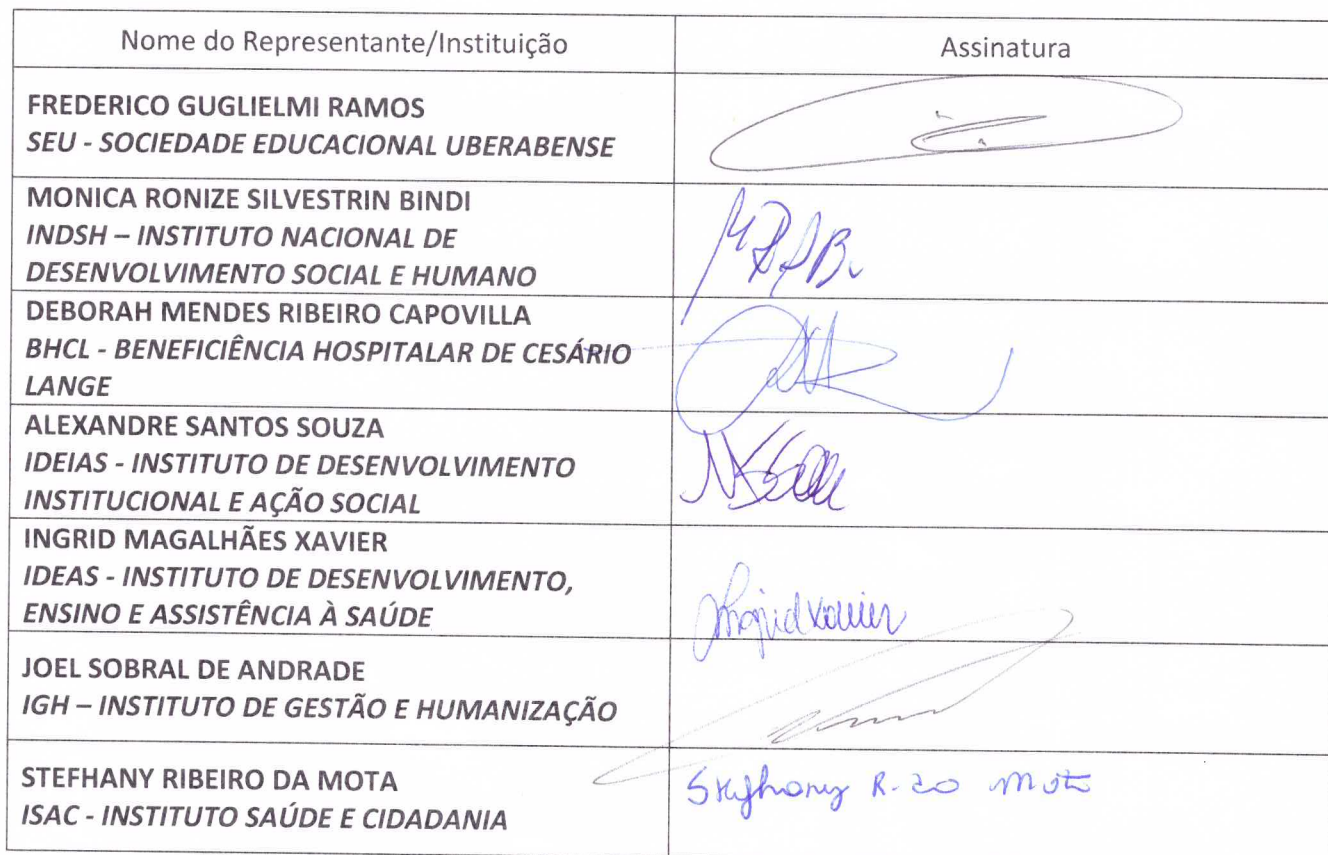 Nome do Representante/Instituição Assinatura
FREDERICO GUGLIELMI RAMOS
SEU - SOCIEDADE EDUCACIONAL UBERABENSE
MONICA RONIZE SILVESTRIN BINDI
INDSH – INSTITUTO NACIONAL DE
DESENVOLVIMENTO SOCIAL E HUMANO
DEBORAH MENDES RIBEIRO CAPOVILLA
BHCL - BENEFICIÊNCIA HOSPITALAR DE CESÁRIO
LANGE
ALEXANDRE SANTOS SOUZA
IDEIAS - INSTITUTO DE DESENVOLVIMENTO
INSTITUCIONAL E AÇÃO SOCIAL
INGRID MAGALHÃES XAVIER
IDEAS - INSTITUTO DE DESENVOLVIMENTO,
ENSINO E ASSISTÊNCIA À SAÚDE
Ingrid Xavier
JOEL SOBRAL DE ANDRADE
IGH – INSTITUTO DE GESTÃO E HUMANIZAÇÃO
STEFHANY RIBEIRO DA MOTA
ISAC - INSTITUTO SAÚDE E CIDADANIA
Stefhany R. da Mota